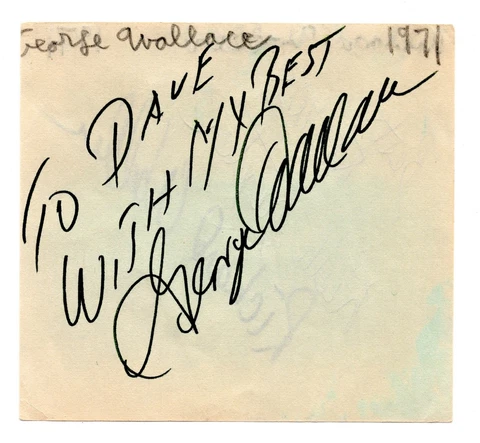 George Wallace 1971
TO DAVE
WITH MY BEST
George Wallace